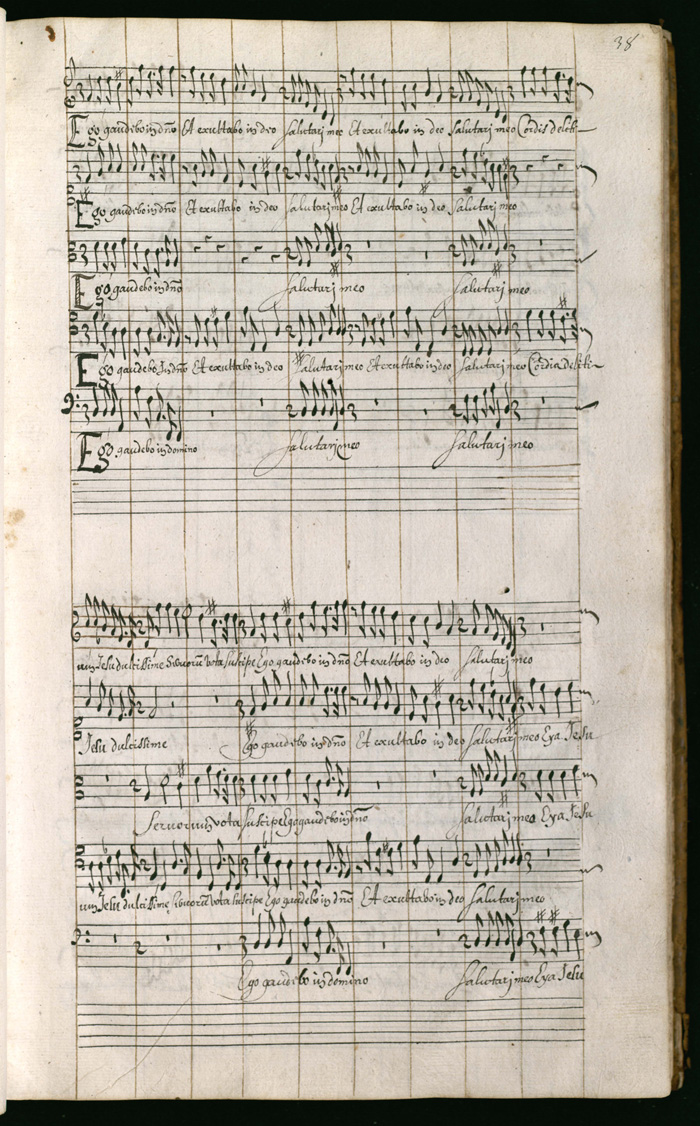 38
Ego gaudebo in dño Et exultabo in deo Salutari meo Et exultabo in deo Salutari meo Cordis deliti-
Ego gaudebo in dño Et exultabo in deo Salutari meo Et exultabo in deo Salutari meo
Ego gaudebo in dño Salutari meo Salutari meo
Ego gaudebo In dño Et exultabo in deo Salutari meo Et exultabo in deo Salutari meo Cordis deliti-
Ego gaudebo in domino Salutari meo Salutari meo
um Jesu dulcissime Servorũ vota suscipe Ego gaudebo in dño Et exultabo in deo Salutari meo
Jesu dulcissime Ego gaudebo in dño Et exultabo in deo Salutari meo Eya Jesu
Servorum vota suscipe Ego gaudebo in dño Salutari meo Eya Jesu
um Jesu dulcissime Servorũ vota suscipe Ego gaudebo in dño Et exultabo in deo Salutari meo
Ego gaudebo in domino Salutari meo Eya Jesu